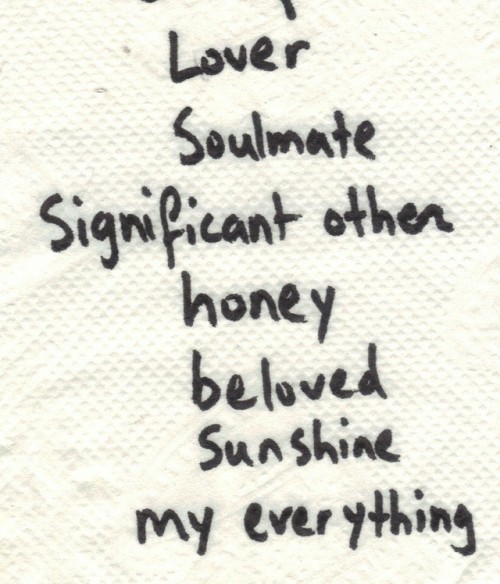 Lover
Soulmate
Significant other
honey
beloved
Sunshine
my everything